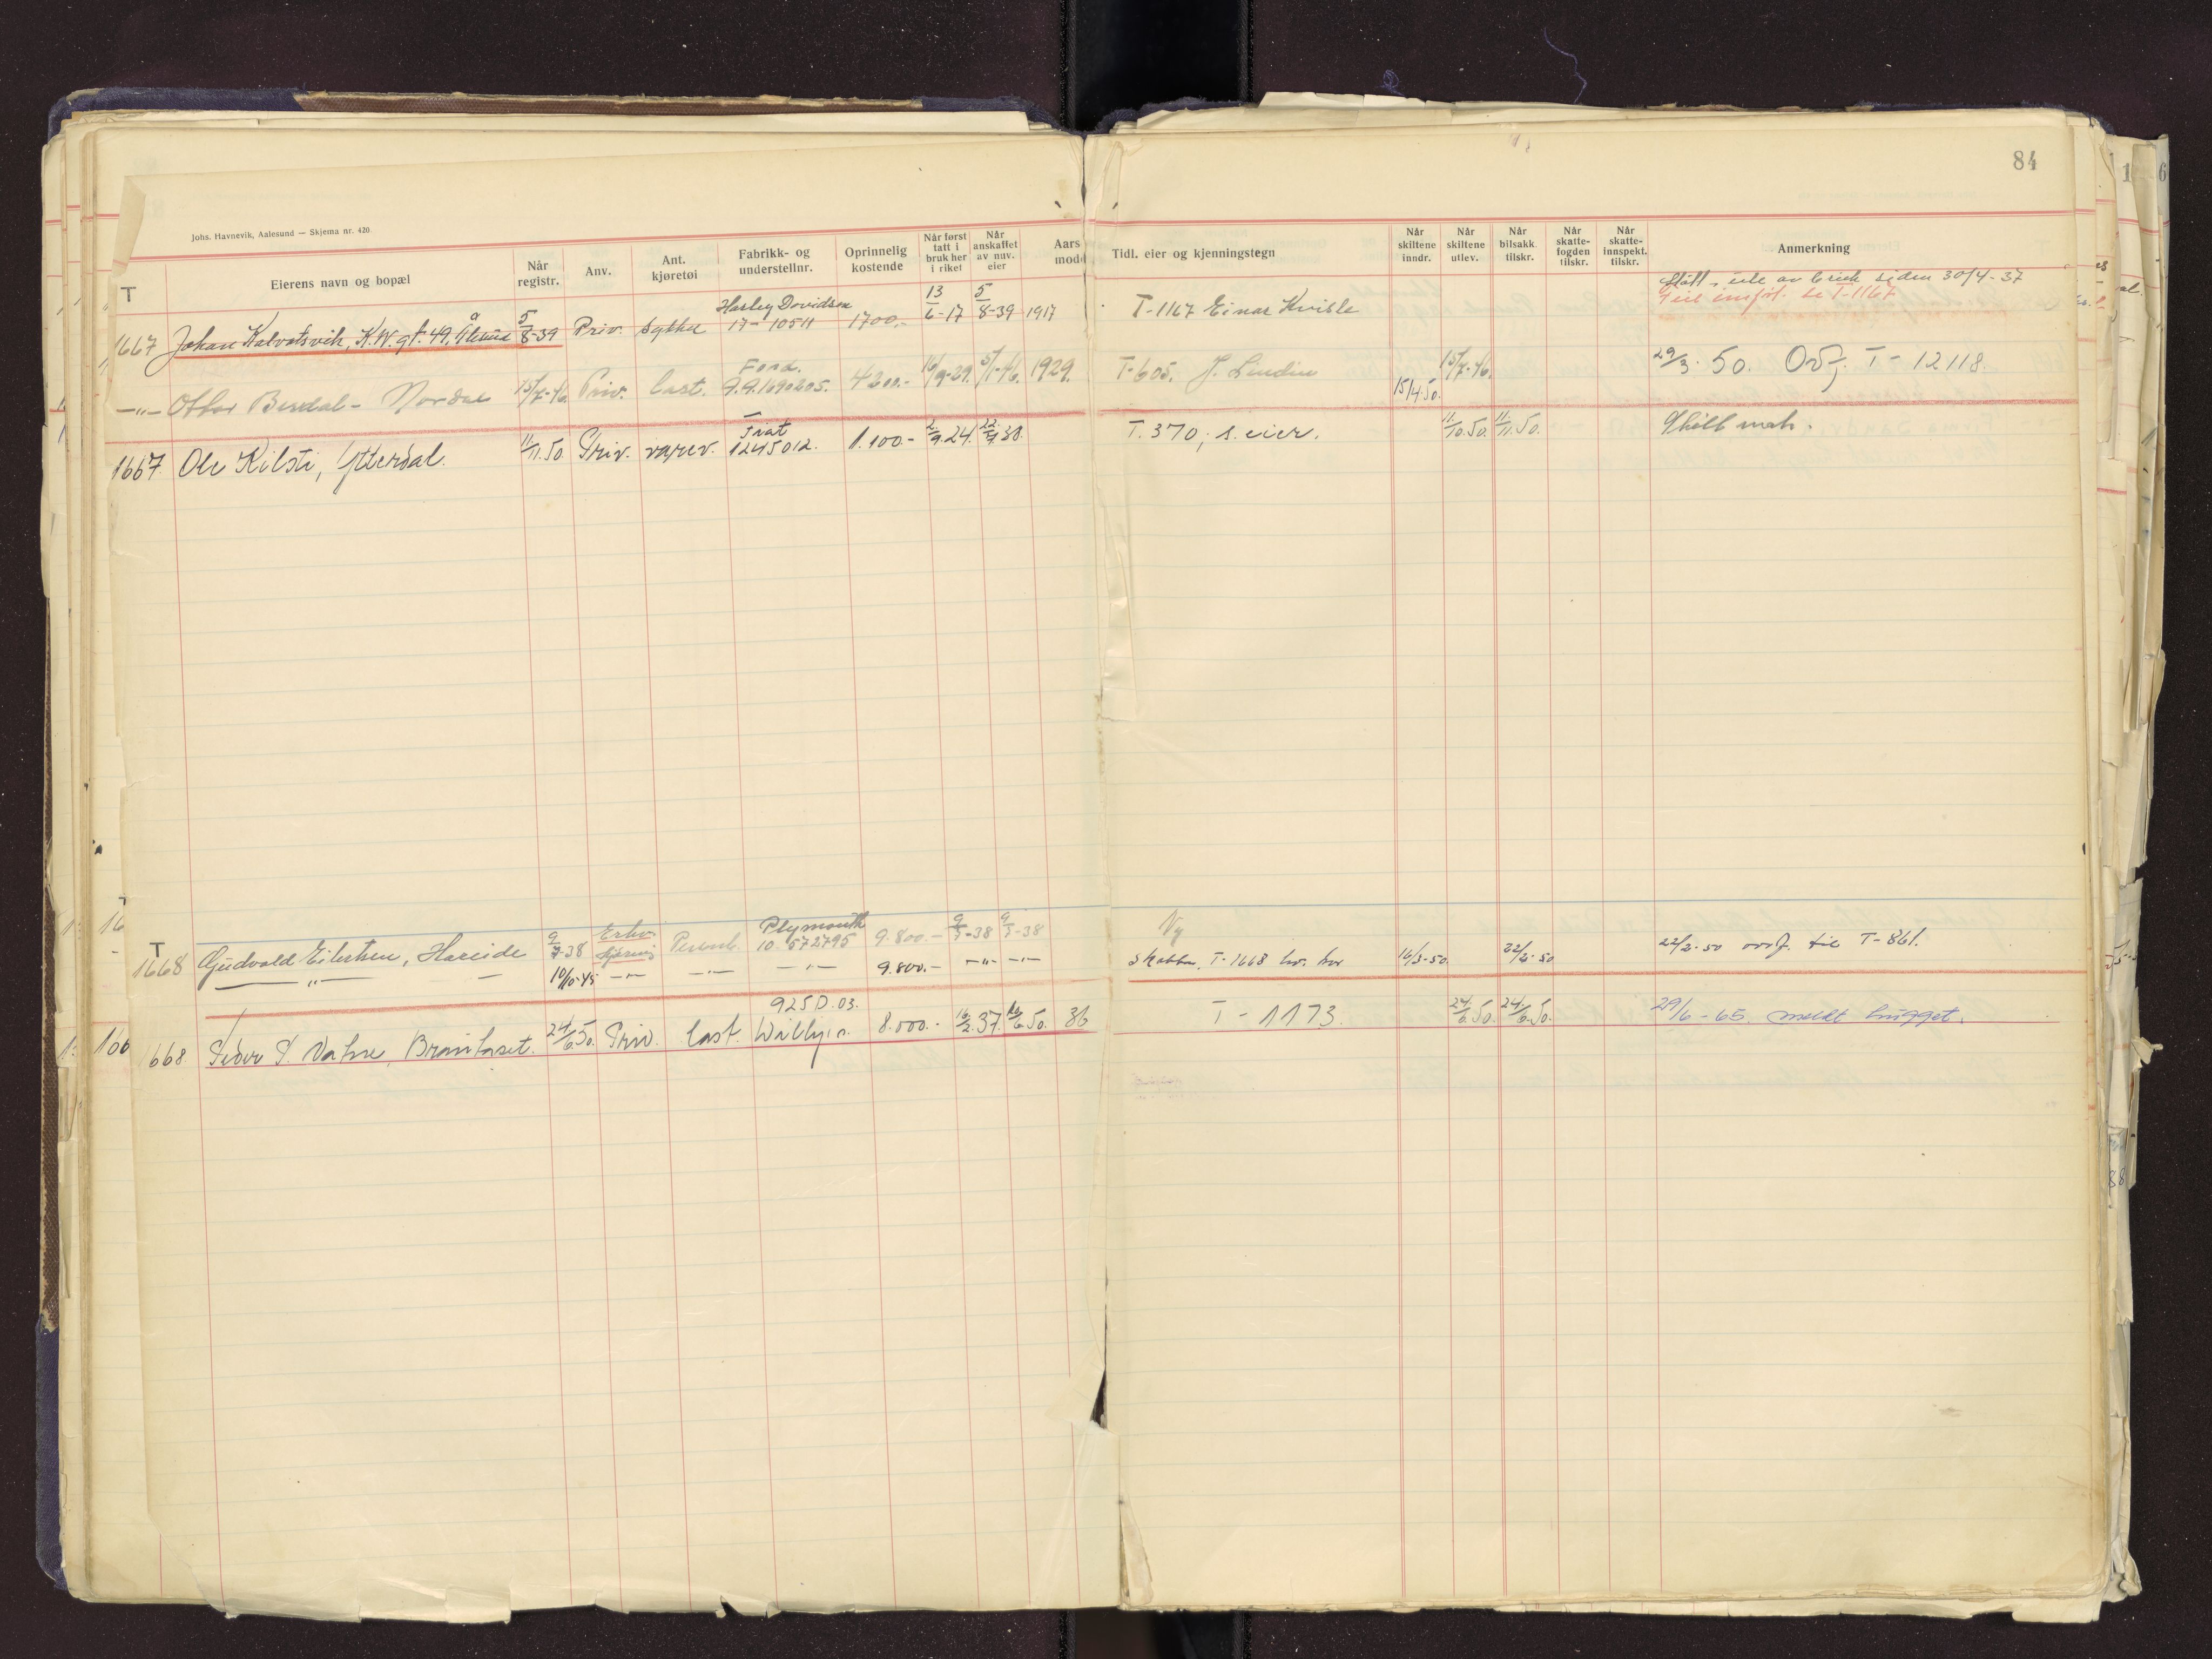 84
Johs. Havnevik, Aalesund — Skjema nr. 420
T
Eierens navn og bopæl
Når registr.
Anv.
Ant. kjøretøi
Fabrikk- og understellnr.
Oprinnelig kostende
Når først tatt i bruk her i riket
Når anskaffet av nuv. eier
Aars mode
Tidl. eier og kjenningstegn
Når skiltene inndr.
Når skiltene utlev.
Når bilsakk. tilskr.
Når skatte- fogden tilskr.
Når skatte- innspekt. tilskr.
Anmerkning
1667 Johan Kalvatsvik, K.W.gt. 49, Ålesund 5/8-39 Priv. Sykkel Harley Davidson 17-10511 1700.- 13/6-17 5/8-39 1917 T-1167 Einar Kvisle Stått ute av bruk siden 30/4-37
se T-1167
—"— Ottar Berdal - Nordal 15/7-46 Priv. Last. Ford. 4200.- 16/9-29. 5/1-46. 1929. T-605. J. 15/4.50. 15/7-46. 29/3.50. Ovf. T-12118.
1667 Ole Kilsti, Ytterdal. 11/11.50 Priv. varev. Fiat 1245012. 1.100.- 2/9.24. T.370, s. eier. 11/10.50. 11/11.50.
T
1668 Gudvald Eilertsen, Hareide 9/7-38 Erhv. Personb. Plymouth 10.572795 9.800.- 9/7-38 9/7-38 Ny
—"— 10/10-45 —"— —"— —"— 9.800.- —"— —"— T-1668 16/3-50. 22/2-50 22/2-50 overf. til T-861.
668 Peder P. Vatne, Brandtaset. 24/6.50. Priv. last. 925D.03. Willys 8.000.- 16/2.37. 16/6.50. 36 T-1173. 24/6.50. 24/6.50. 29/6-65 meldt hugget.